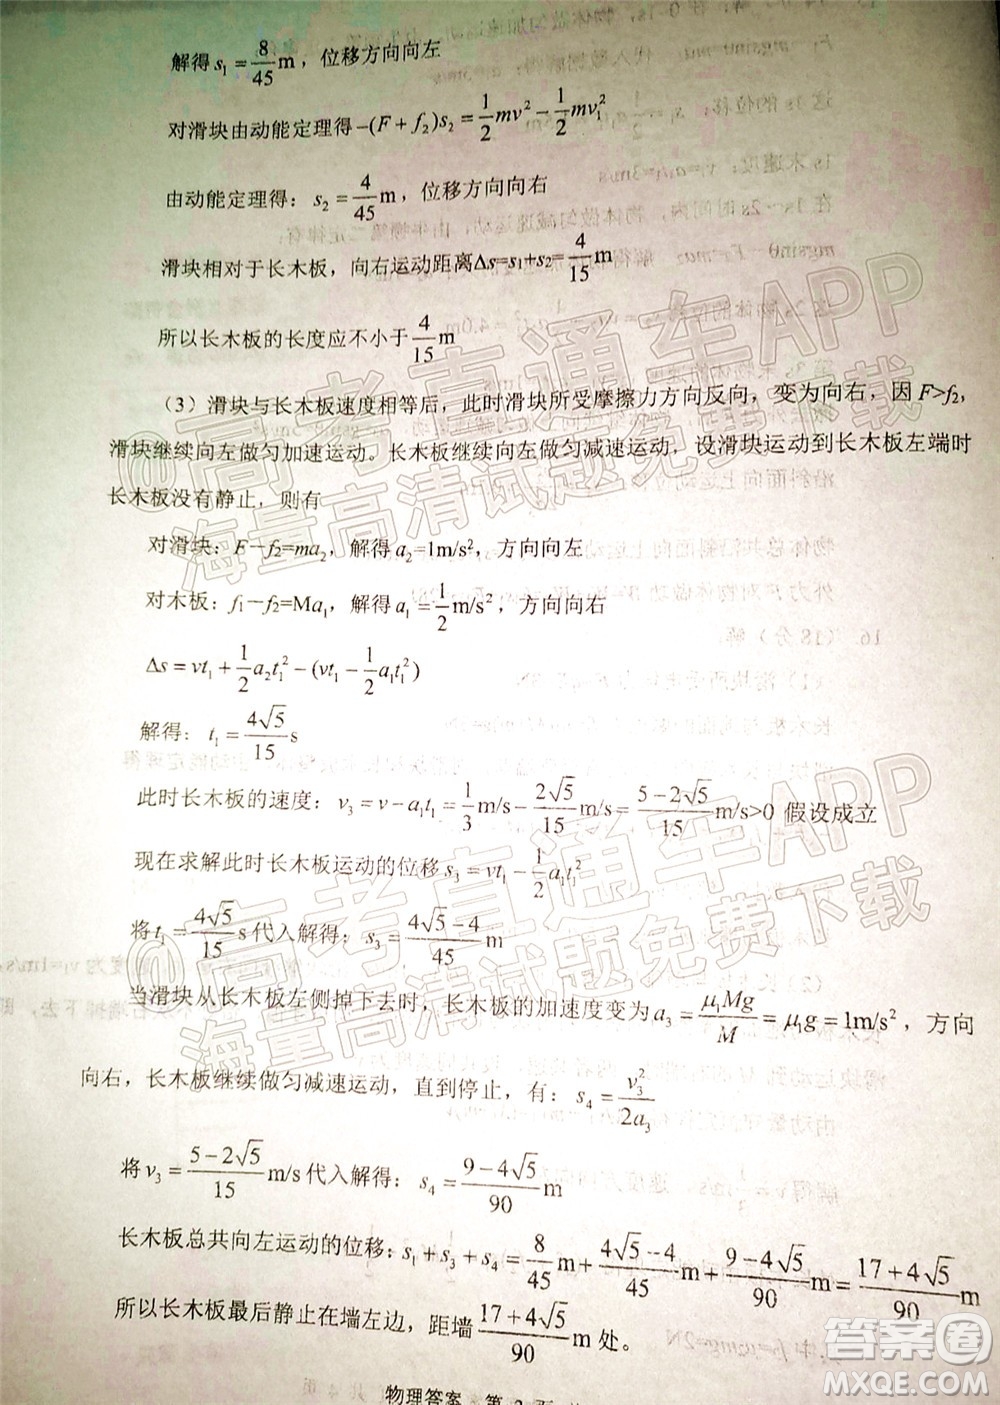 解得 s₁ = 8/45 m，位移方向向左
对滑块由动能定理得 −(F + f₂)s₂ = 1/2 mv² − 1/2 mv₁²
由动能定理得：s₂ = 4/45 m，位移方向向右
滑块相对于长木板，向右运动距离Δs=s₁+s₂= 4/15 m
所以长木板的长度应不小于 4/15 m
（3）滑块与长木板速度相等后，此时滑块所受摩擦力方向反向，变为向右，因 F>f₂，
滑块继续向左做匀加速运动。长木板继续向左做匀减速运动，设滑块运动到长木板左端时
长木板没有静止，则有
对滑块：F−f₂=ma₂，解得 a₂=1m/s²，方向向左
对木板：f₁−f₂=Ma₁，解得 a₁ = 1/2 m/s²，方向向右
Δs = vt₁ + 1/2 a₂t₁² − (vt₁ − 1/2 a₁t₁²)
解得：t₁ = 4√5/15 s
此时长木板的速度：v₃ = v − a₁t₁ = 1/3 m/s − 2√5/15 m/s = (5−2√5)/15 m/s>0 假设成立
现在求解此时长木板运动的位移 s₃ = vt₁ − 1/2 a₁t₁²
将 t₁ = 4√5/15 s 代入解得：s₃ = (4√5−4)/45 m
当滑块从长木板左侧掉下去时，长木板的加速度变为 a₃ = μ₁Mg/M = μ₁g = 1m/s²，方向
向右，长木板继续做匀减速运动，直到停止，有：s₄ = v₃²/2a₃
将 v₃ = (5−2√5)/15 m/s 代入解得：s₄ = (9−4√5)/90 m
长木板总共向左运动的位移：s₁ + s₃ + s₄ = 8/45 m + (4√5−4)/45 m + (9−4√5)/90 m = (17+4√5)/90 m
所以长木板最后静止在墙左边，距墙 (17+4√5)/90 m 处。
物理答案 第
@高考直通车APP
海量高清试题免费下载
@高考直通车APP
海量高清试题免费下载
答案圈
MXQE.COM